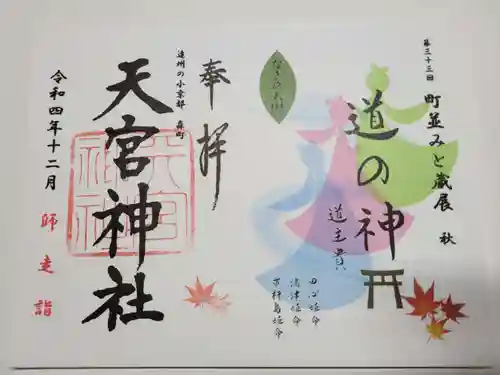 第三十三回
町並みと蔵展 秋
道の神
道主貴
田心姫命
湍津姫命
市杵島姫命
奉拝
遠州の小京都 森町
天宮神社
令和四年十二月
師走詣